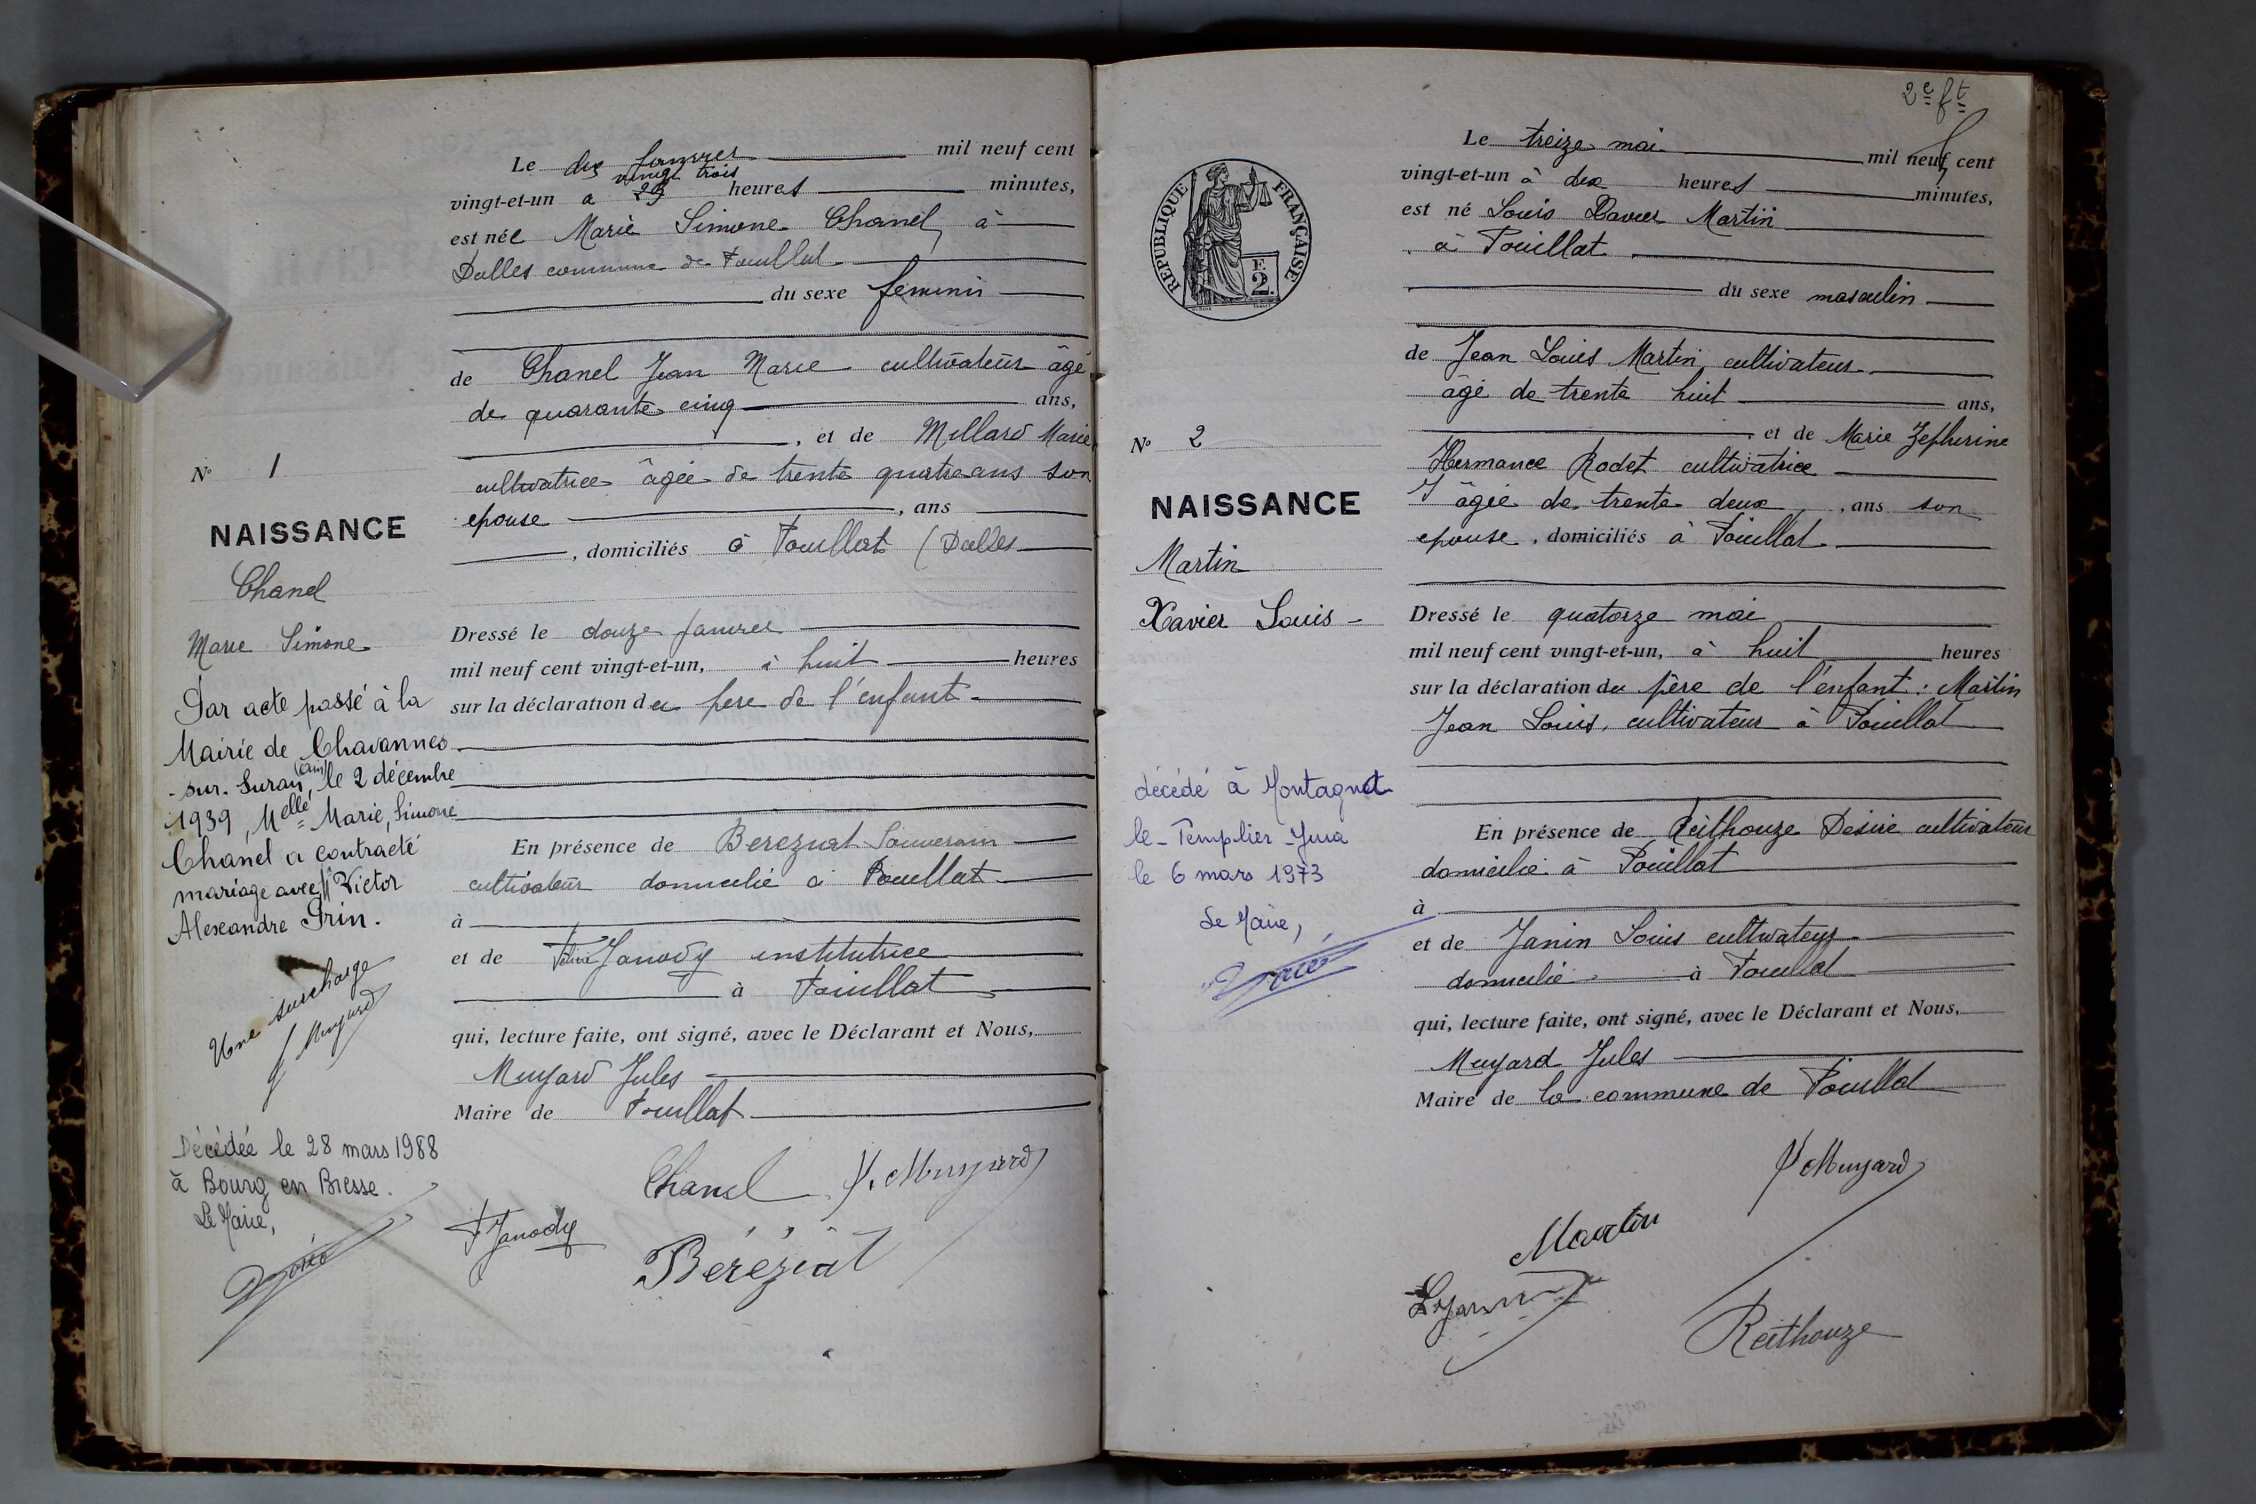 Le dix janvier mil neuf cent
vingt trois
vingt-et-un a 23 heures minutes,
est née Marie Simone Chanel, à
Dalles commune de Pouillat
du sexe feminin
de Chanel Jean Marie cultivateur âgé
de quarante cinq ans,
, et de Millard Marie
cultivatrice âgée de trente quatre ans son
epouse , ans
, domiciliés à Pouillat (Dalles
N° 1
NAISSANCE
Chanel
Marie Simone
Dressé le douze janvier
mil neuf cent vingt-et-un, à huit heures
sur la déclaration du pere de l'enfant
Par acte passé à la
Mairie de Chavannes
-sur-Suran (Ain), le 2 décembre
1939, Melle Marie, Simone
Chanel a contracté
mariage avec M Victor
Alexandre Prin.
En présence de Bereziat Souverain
cultivateur domicilié à Pouillat
à
et de Janody institutrice
à Pouillat
qui, lecture faite, ont signé, avec le Déclarant et Nous,
Muyard Jules
Maire de Pouillat
Une surcharge
J Muyard
Décédée le 28 mars 1988
à Bourg en Bresse.
Le Maire,
Chanel J. Muyard
F Janody
Béréziat
2e ft
Le treize mai mil neuf cent
vingt-et-un à dix heures minutes,
est né Louis Xavier Martin
à Pouillat
du sexe masculin
de Jean Louis Martin, cultivateur
âgé de trente huit ans,
et de Marie Zepherine
Hermance Rodet cultivatrice
âgée de trente deux , ans son
epouse , domiciliés à Pouillat
REPUBLIQUE FRANÇAISE
F.
2.
N° 2
NAISSANCE
Martin
Xavier Louis -
Dressé le quatorze mai
mil neuf cent vingt-et-un, à huit heures
sur la déclaration du père de l'enfant : Martin
Jean Louis, cultivateur à Pouillat
décédé à Montagna
le-Templier-Jura
le 6 mars 1973
Le Maire,
En présence de Reithouze Desire cultivateur
domicilié à Pouillat
à
et de Janin Louis cultivateur
domicilié à Pouillat
qui, lecture faite, ont signé, avec le Déclarant et Nous,
Muyard Jules
Maire de la commune de Pouillat
J Muyard
Martin
Reithouze